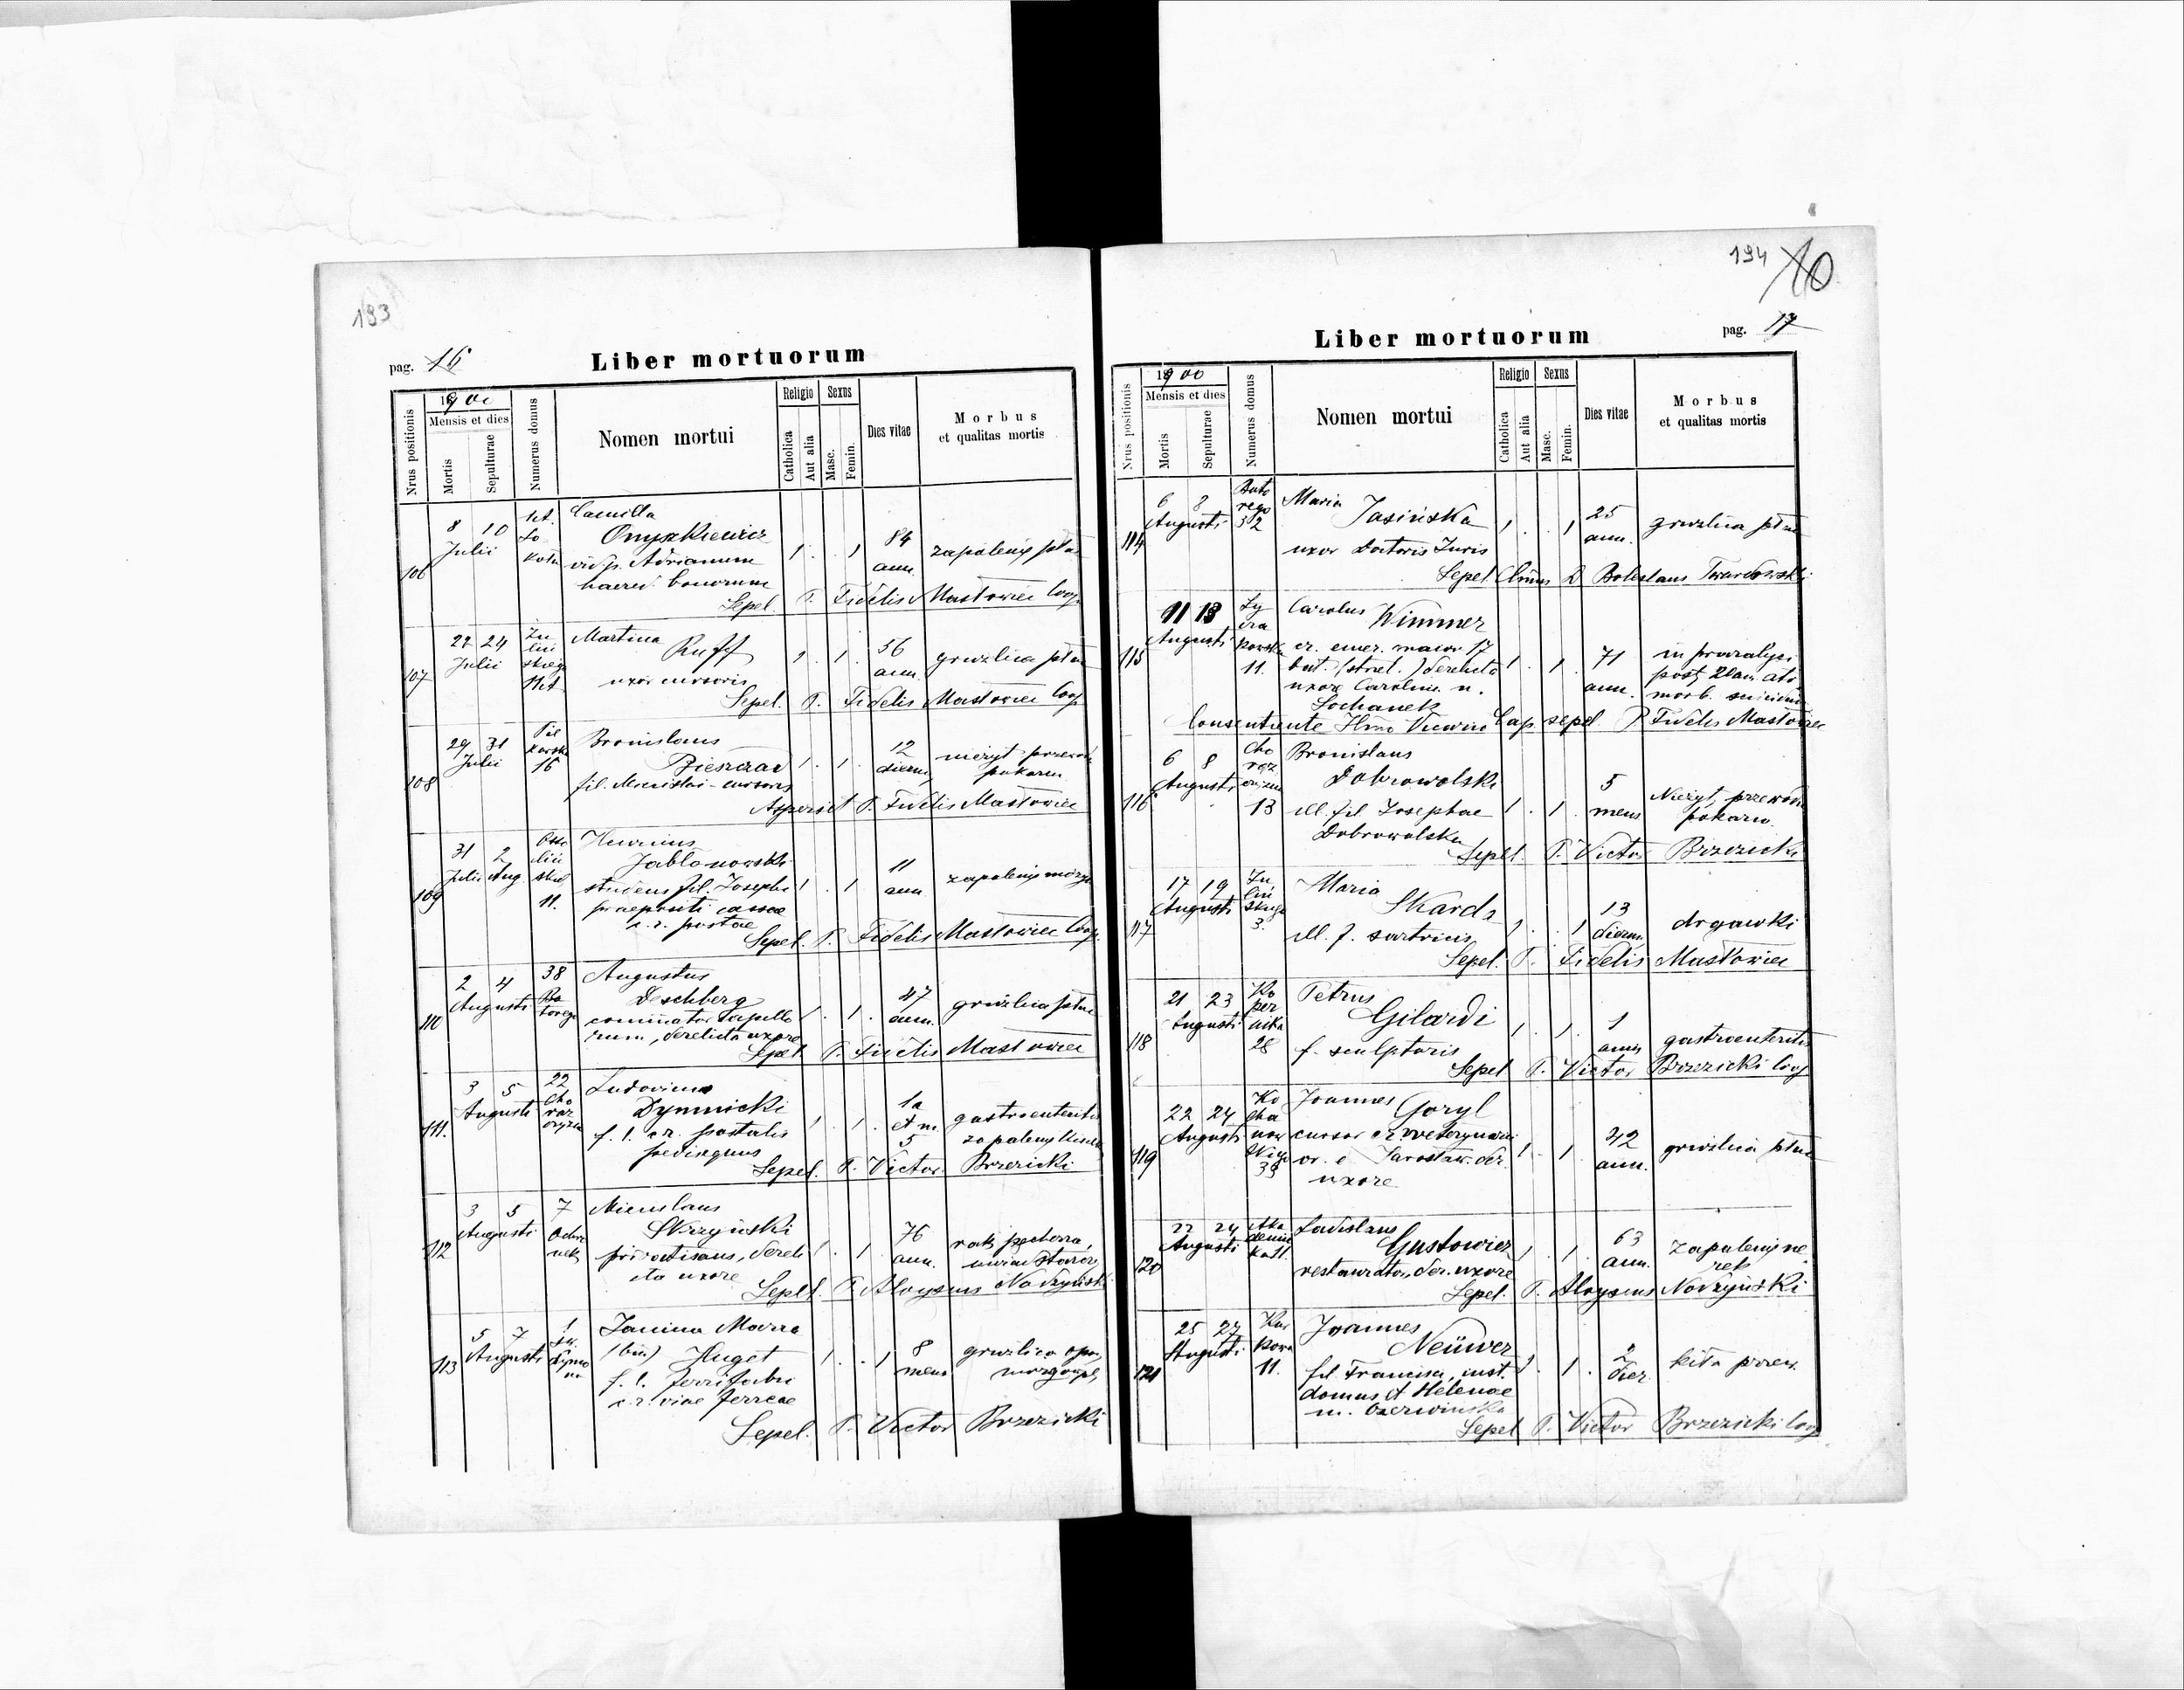 193
pag. 16
Liber mortuorum
Nrus positionis
1900
Mensis et dies
Mortis
Sepulturae
Numerus domus
Nomen mortui
Religio
Catholica
Aut alia
Sexus
Masc.
Femin.
Dies vitae
Morbus
et qualitas mortis
106
8 10
Julii
Camilla
Onyszkiewicz
vid. p. Adrianum
haered. bonorum
1 . . 1
84
ann.
zapalenie płuc
Sepel. P. Fidelis Mastowiec Coop.
107
22 24
Julii
Zu
liń
skiego
Martina
Ruff
uxor cursoris
56
ann.
gruzlica płuc
Sepel. P. Fidelis Mastowiec Coop
108
29 31
Julii
Pie
karska
16
Bronislaus
fil. cursoris
1 . 1 .
12
dierum
nieżyt przewod
pokarm
P. Fidelis Mastowiec
109
31 2
Julii Aug.
Osso
liń
skich
11.
Henricus
Jabłonowski
studens fil. Josephi
praepositi cassae
c. r. postae
1 . 1
11
ann
zapalenie mózgu
Sepel. P. Fidelis Mastowiec Coop.
110
2 4
Augusti
38
Ba
torego
Augustus
Deschberg
derelicta uxore
1 . 1 .
47
ann.
gruzlica płuc
Sepel. P. Fidelis Mastowiec
111.
3 5
Augusti
22
Cho
rąż
czyzna
Ludovicus
Dymnicki
f. l. c. r. postalis
pedisequus
1 . 1 .
1a
et m.
5
gastroenteritis
zapalenie
Sepel. P. Victor Brzezicki
112
3 5
Augusti
7
Miecislaus
Skrzyński
privatisans, dereli
cta uxore
1 . 1 .
76
ann.
rak pęcherza,
uwiąd starczy
Sepel. P. Aloysius Nodzyński
113
5 7
Augusti
1
Janina Maria
(bin.) Huget
f. l. ferrifabri
c. r. viae ferreae
1 . . 1
8
mens
gruzlica opon
mózgowych
Sepel. P. Victor Brzezicki
194
10
Liber mortuorum
pag. 17
Nrus positionis
1900
Mensis et dies
Mortis
Sepulturae
Numerus domus
Nomen mortui
Religio
Catholica
Aut alia
Sexus
Masc.
Femin.
Dies vitae
Morbus
et qualitas mortis
114
6 8
Augusti
Bato
rego
32
Maria
Jasińska
uxor Doctoris Juris
1 . . 1
25
ann.
gruzlica płuc
Sepel. D Boleslaus Twardowski
115
11 13
Augusti
Ły
cza
kowska
11.
Carolus Wimmer
cr. emer. maior 17
derelicta
uxore Carolina n.
Sochanek
1 . 1 .
71
ann.
in paralysi
suicidium
Consentiente sepel. P. Fidelis Mastowiec
116
6 8
Augusti
Cho
rąż
czyzna
13
Bronislaus
Dobrowolski
ill. fil Josephae
Dobrowolska
1 . 1 .
5
mens
Nieżyt przewodu
pokarm.
Sepel. P. Victor Brzezicki
117
17 19
Augusti
Zu
liń
skiego
3.
Maria
Skarda
ill. f. sartricis
1 . . 1
13
dierum
drgawki
Sepel. P. Fidelis Mastowiec
118
21 23
Augusti
Ko
per
nika
28
Petrus
Gilardi
f. sculptoris
1 . 1 .
1
anni
gastroenteritis
Sepel P. Victor Brzezicki Coop
119
22 24
Augusti
Ko
cha
now
skiego
39
Joannes Goryl
cursor
or. e Jarosław. der.
uxore
1 . 1
42
ann.
gruzlica płuc
120
22 24
Augusti
Ladislaus
Gustowicz
restaurator, der. uxore
1 . 1 .
63
ann.
zapalenie ne
rek
Sepel. P. Aloysius Nodzyński
121
25 27
Augusti
Kur
kowa
11.
Joannes
Neüwer
fil. Francisci, cust.
domus et Helenae
n. Czerwińska
1 . 1 .
2
dier.
Sepel P. Victor Brzezicki Coop